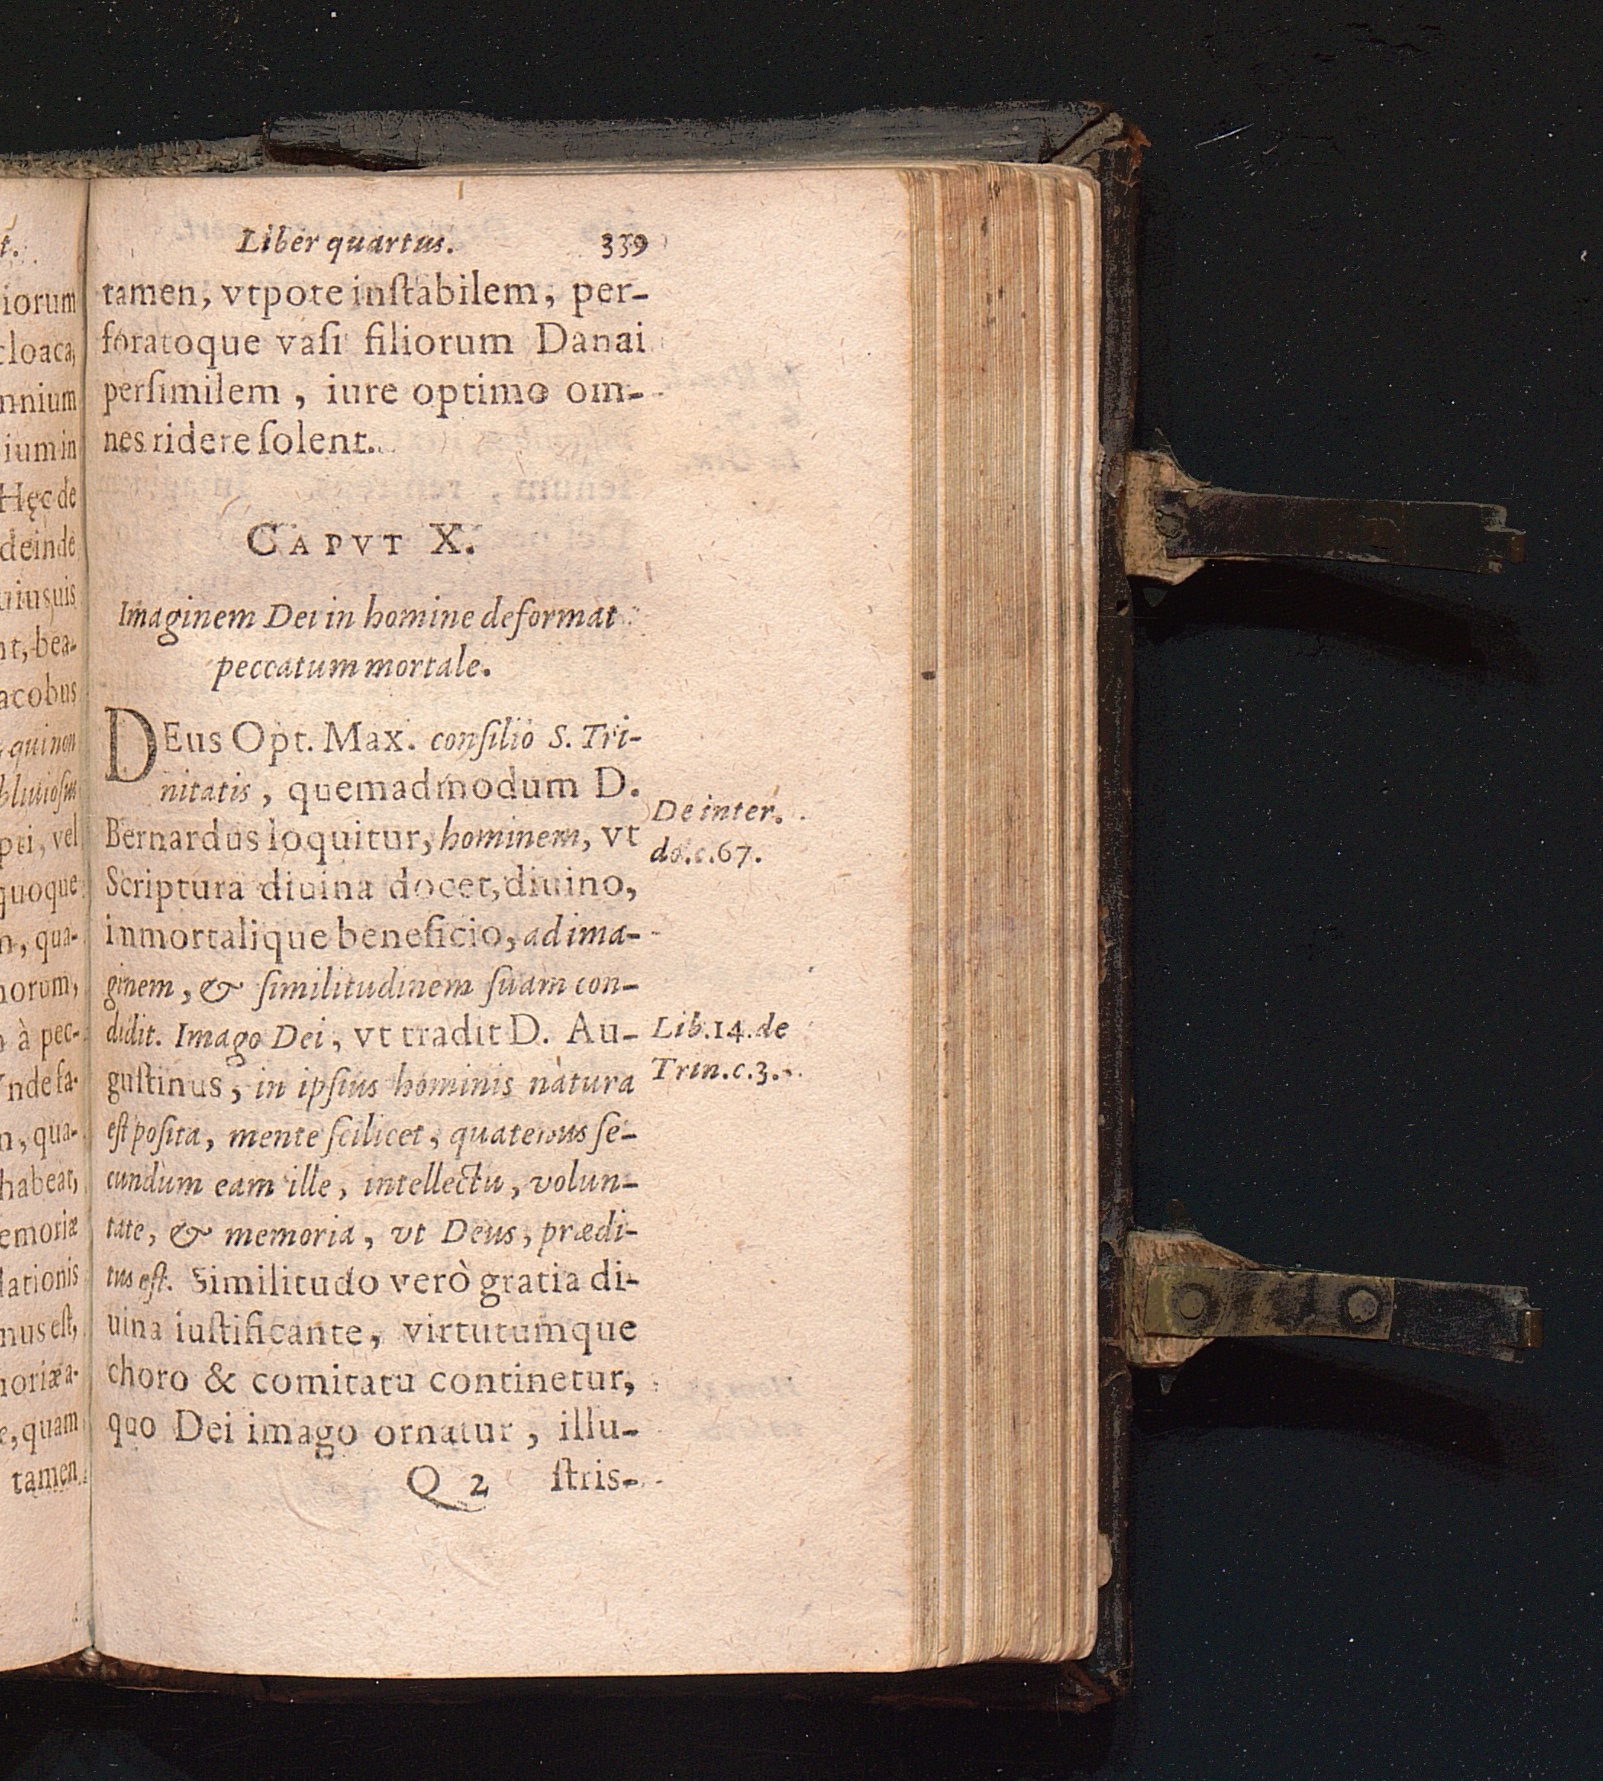 t.
iorum
cloaca,
mnium
ium in
Hęc de
deinde
uiusuis
nt, bea-
acobus
qui non
pti, vel
quoque
n, qua-
norum,
à pec-
Vnde fa-
n, qua-
habeat,
emoriæ
lationis
nus est,
moriæ a-
e, quam
tamen
Liber quartus. 339
tamen, vtpote instabilem, per-
foratoque vasi filiorum Danai
persimilem, iure optimo om-
nes ridere solent.
CAPVT X.
Imaginem Dei in homine deformat
peccatum mortale.
DEus Opt. Max. consilio S. Tri-
nitatis, quemadmodum D.
Bernardus loquitur, hominem, vt
De inter.
do. c. 67.
Scriptura diuina docet, diuino,
inmortalique beneficio, ad ima-
ginem, & similitudinem suam con-
didit. Imago Dei, vt tradit D. Au-
Lib. 14. de
Trin. c. 3.
gustinus, in ipsius hominis natura
est posita, mente scilicet, quatenus se-
cundum eam ille, intellectu, volun-
tate, & memoria, vt Deus, prædi-
tus est. Similitudo verò gratia di-
uina iustificante, virtutumque
choro & comitatu continetur,
quo Dei imago ornatur, illu-
Q 2 stris-